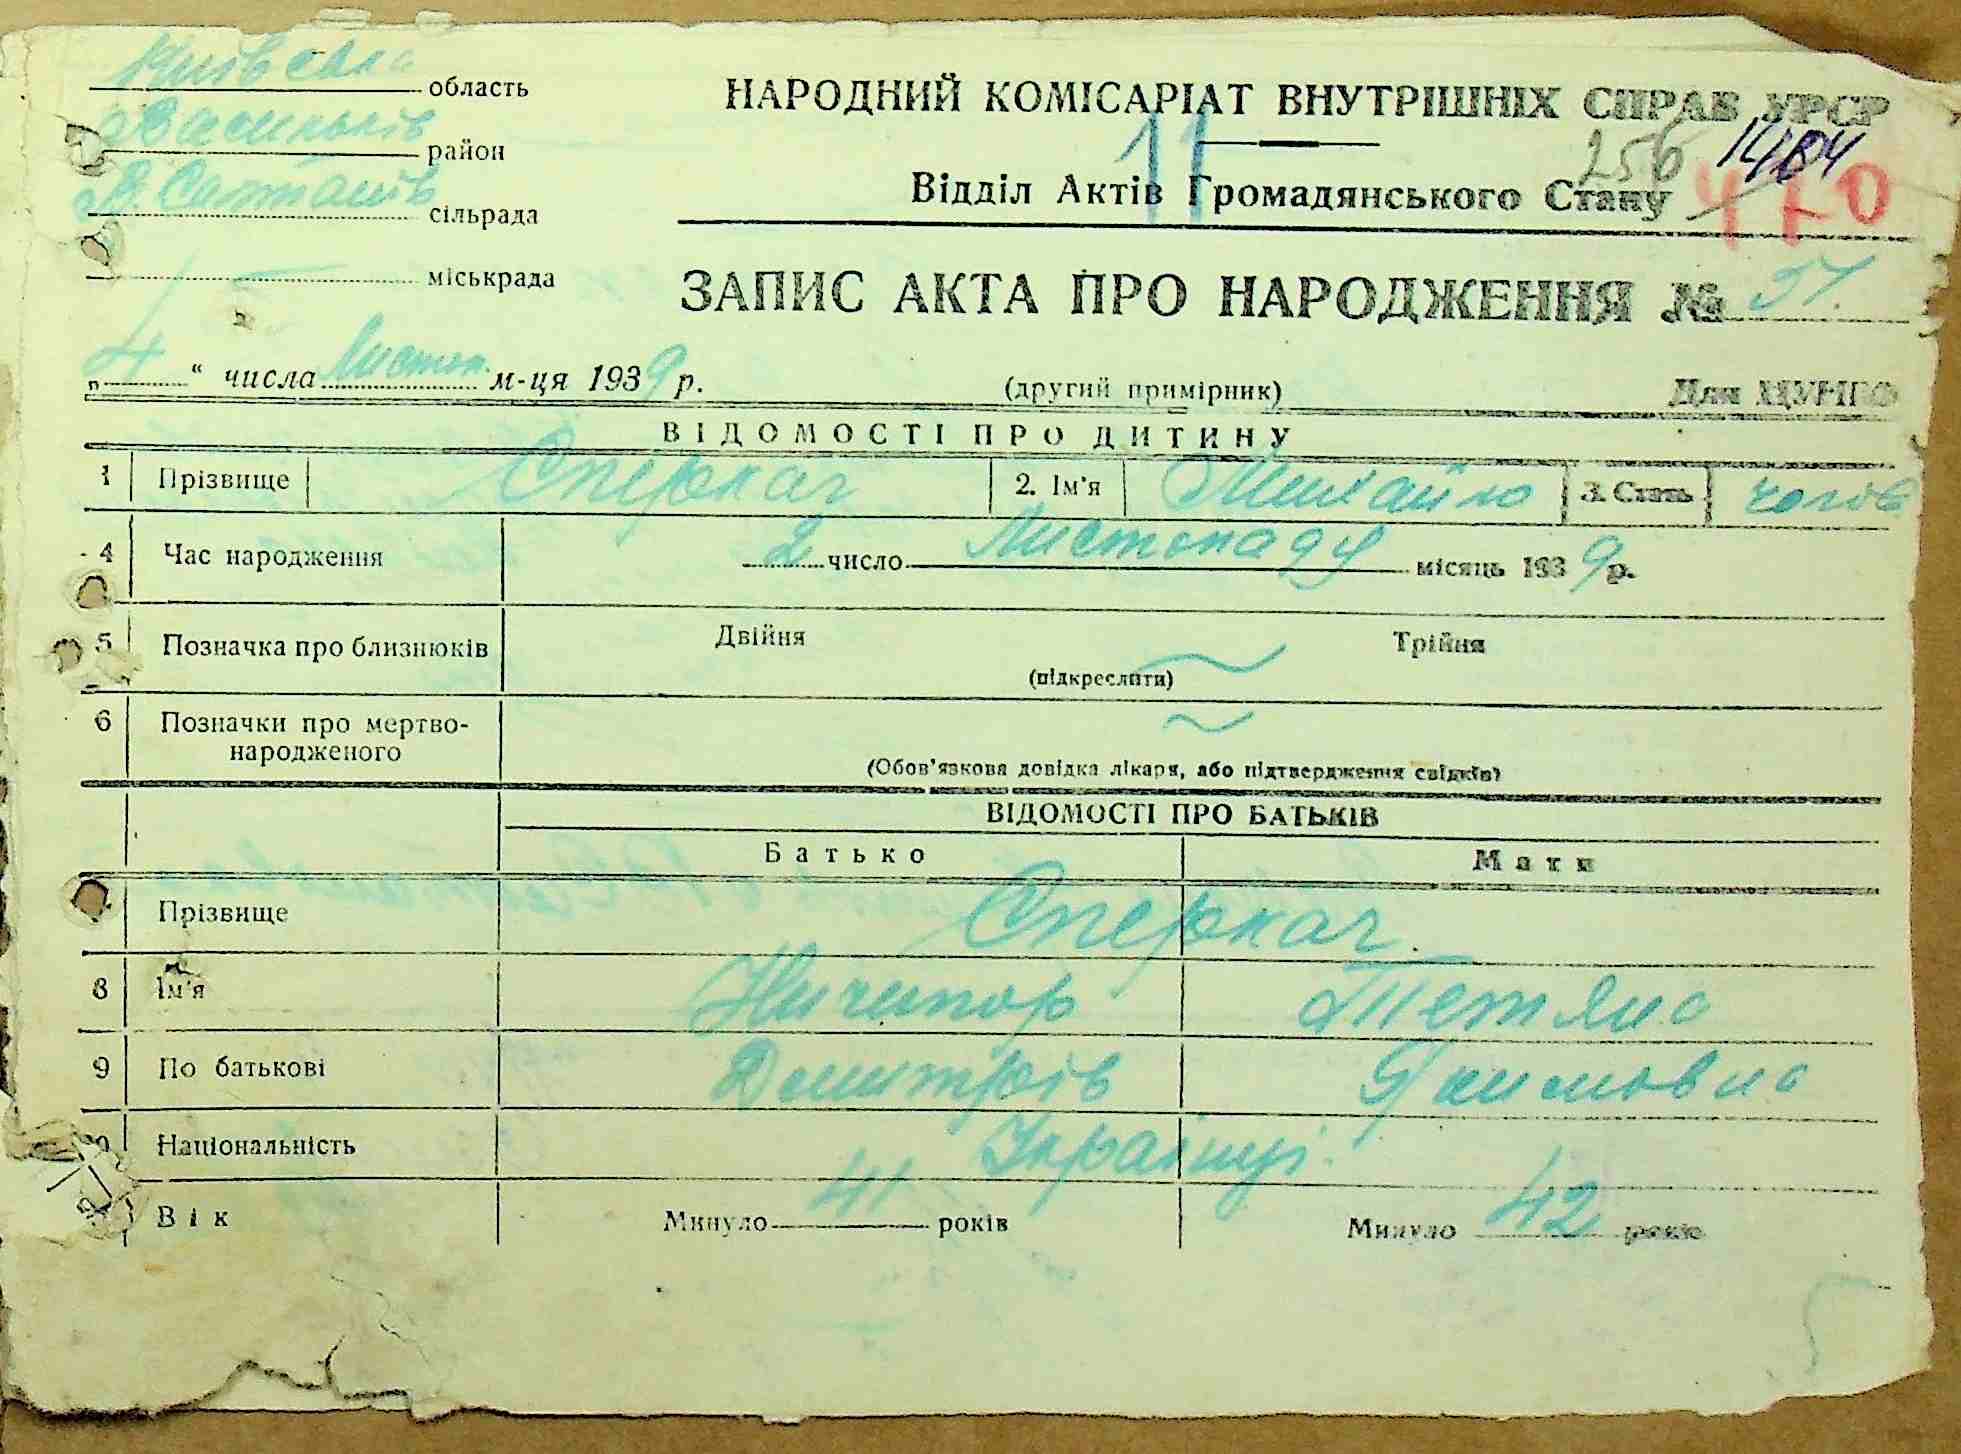 Київська область
Васильків район
В. Салтанів сільрада
— міськрада
НАРОДНИЙ КОМІСАРІАТ ВНУТРІШНІХ СПРАВ УРСР
11 256
Відділ Актів Громадянського Стану 470
ЗАПИС АКТА ПРО НАРОДЖЕННЯ № 57.
„ 4 “ числа Листоп. м-ця 1939 р. (другий примірник) Для ЦУНГО
ВІДОМОСТІ ПРО ДИТИНУ
1 Прізвище Сперкач 2. Ім'я Михайло 3. Стать чолов
4 Час народження 2 число Листопаду місяць 1939 р.
5 Позначка про близнюків Двійня Трійня
(підкреслити)
6 Позначки про мертво-
народженого
(Обов'язкова довідка лікаря, або підтвердження свідків)
ВІДОМОСТІ ПРО БАТЬКІВ
Батько Мати
Прізвище Сперкач.
8 Ім'я Ничипор Тетяна
9 По батькові Дмитрів Якимовна
10 Національність Українці.
Вік Минуло 41 років Минуло 42 років